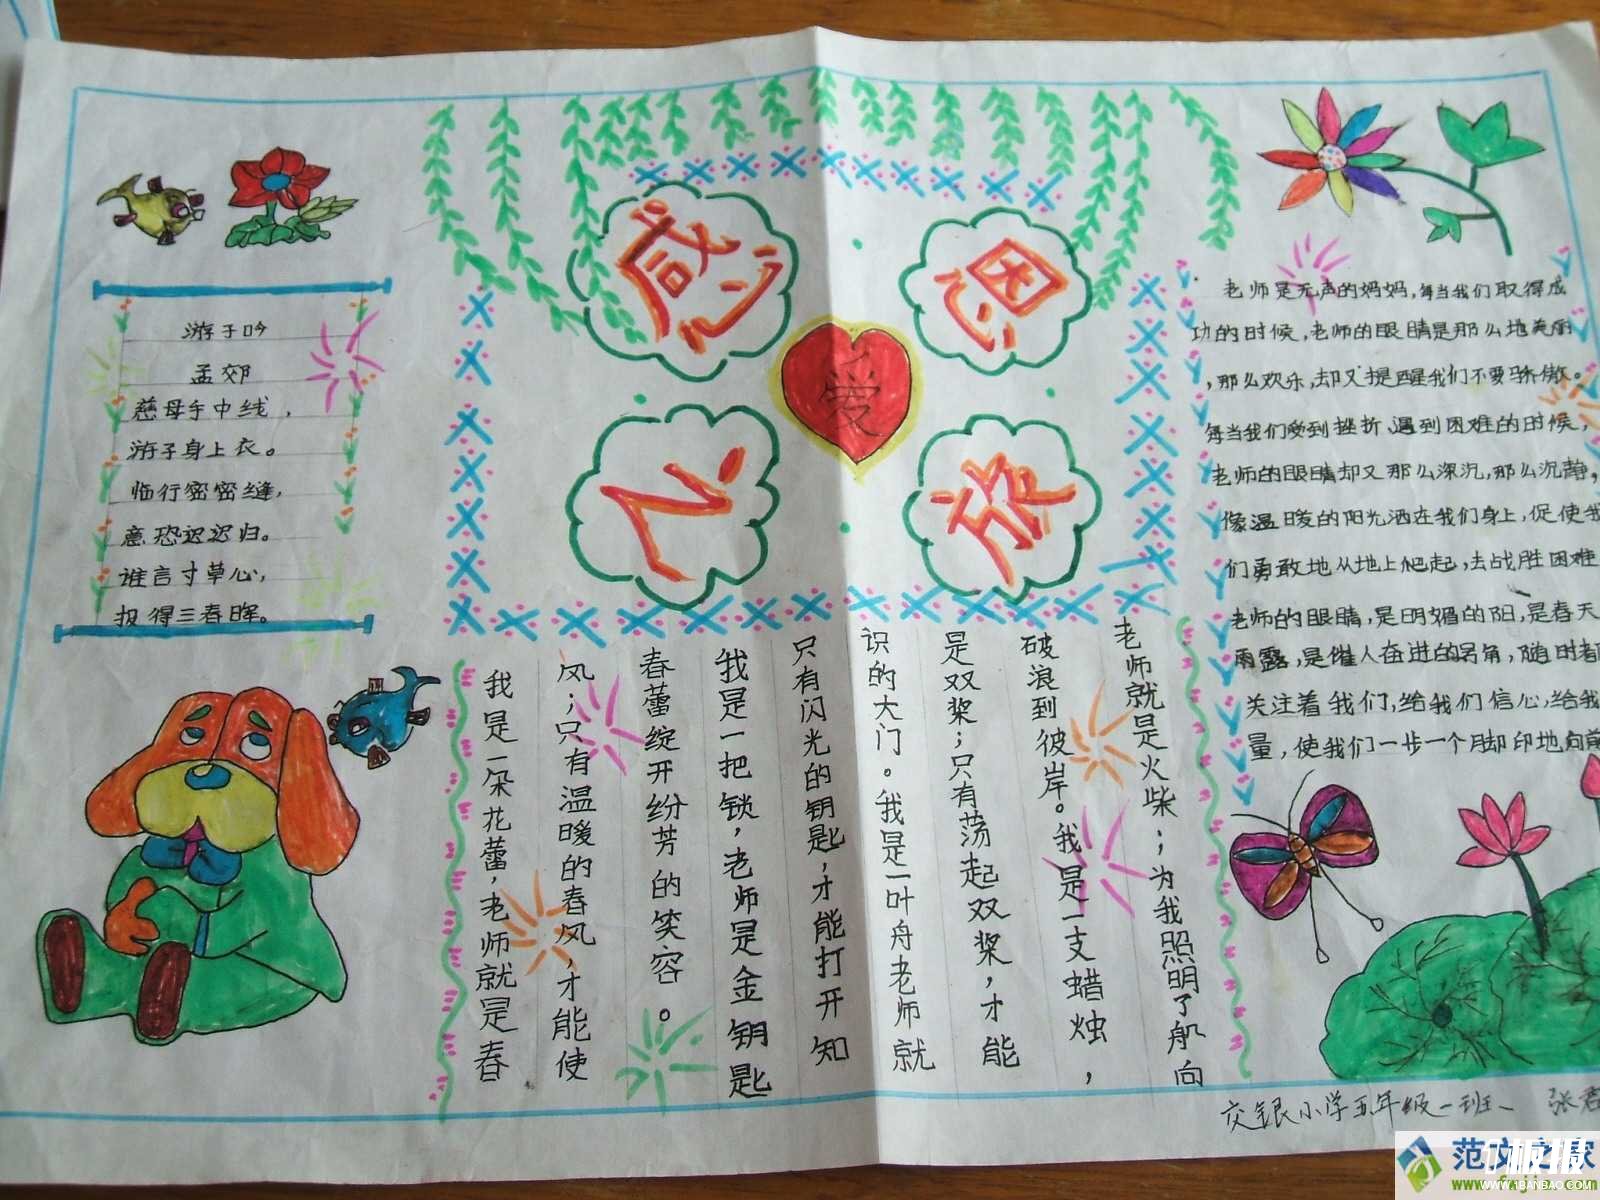 感恩之旅
爱
游子吟
孟郊
慈母手中线，
游子身上衣。
临行密密缝，
意恐迟迟归。
谁言寸草心，
报得三春晖。
我是一朵花蕾，老师就是春
风；只有温暖的春风，才能使
春蕾绽开纷芳的笑容。
我是一把锁，老师是金钥匙
只有闪光的钥匙，才能打开知
识的大门。我是一叶舟老师就
是双桨；只有荡起双桨，才能
破浪到彼岸。我是一支蜡烛，
老师就是火柴；为我照明了船向
老师是无声的妈妈，每当我们取得成
功的时候，老师的眼睛是那么地美丽
，那么欢乐，却又提醒我们不要骄傲。
每当我们受到挫折、遇到困难的时候，
老师的眼睛却又那么深沉，那么沉静，
像温暖的阳光洒在我们身上，促使我
们勇敢地从地上爬起，去战胜困难
老师的眼睛，是明媚的阳，是春天
雨露，是催人奋进的号角，随时都
关注着我们，给我们信心，给我
量，使我们一步一个脚印地向前
交银小学五年级一班、 张君
范文之家
板报
www.1BANBAO.COM